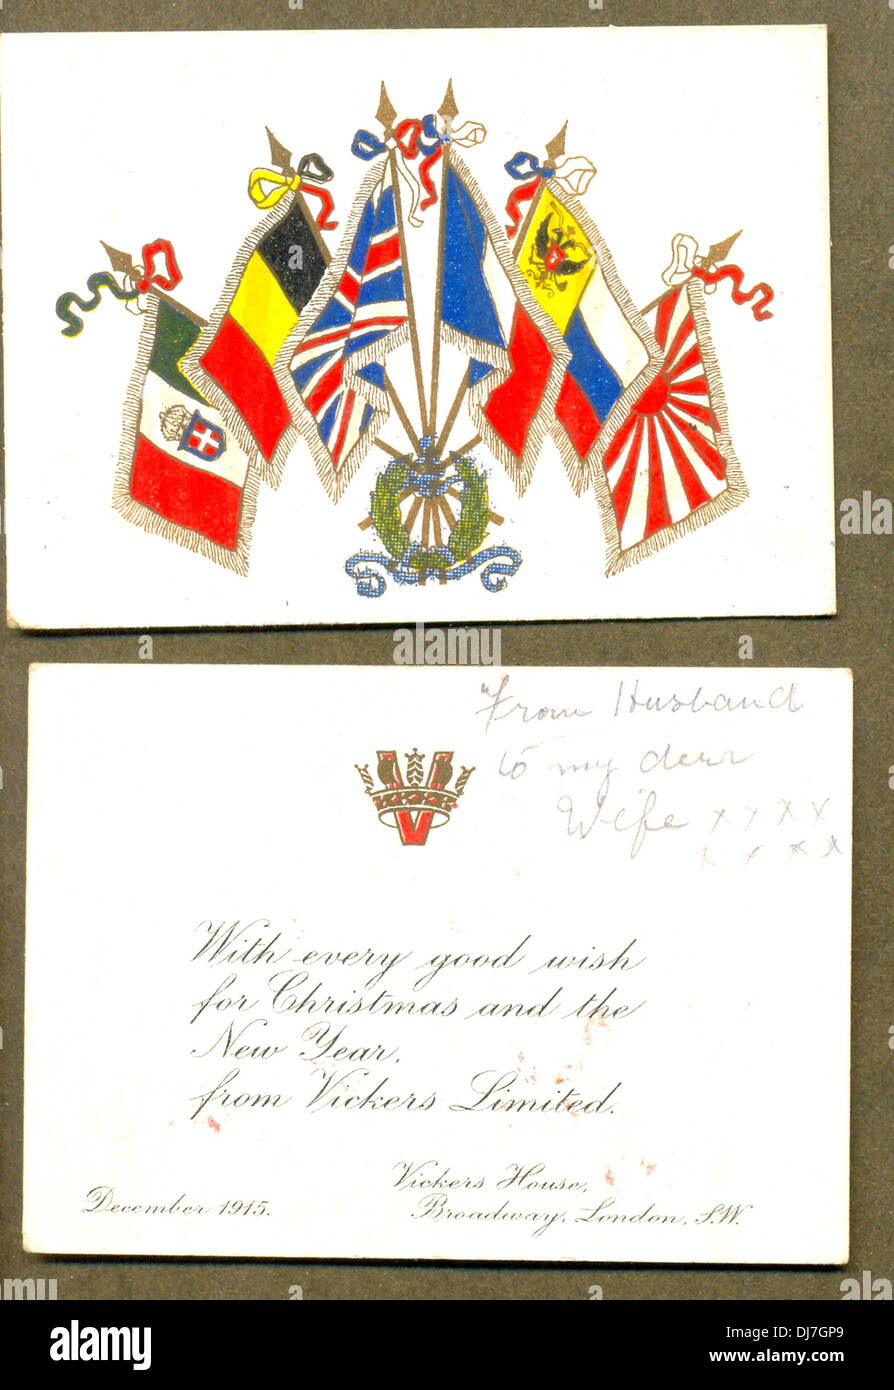 "From Husband
to my dear
Wife x x x x
x x x x
V
With every good wish
for Christmas and the
New Year,
from Vickers Limited.
Vickers House,
December 1915.
Broadway, London, S.W.
alamy
Image ID: DJ7GP9
www.alamy.com